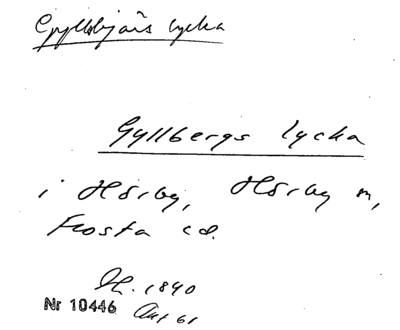 Gyllbjärs lycka
Gyllbergs lycka
i Hörby, Hörby sn,
Frosta hd.
Sk. 1840
Nr 10446 Akt 61